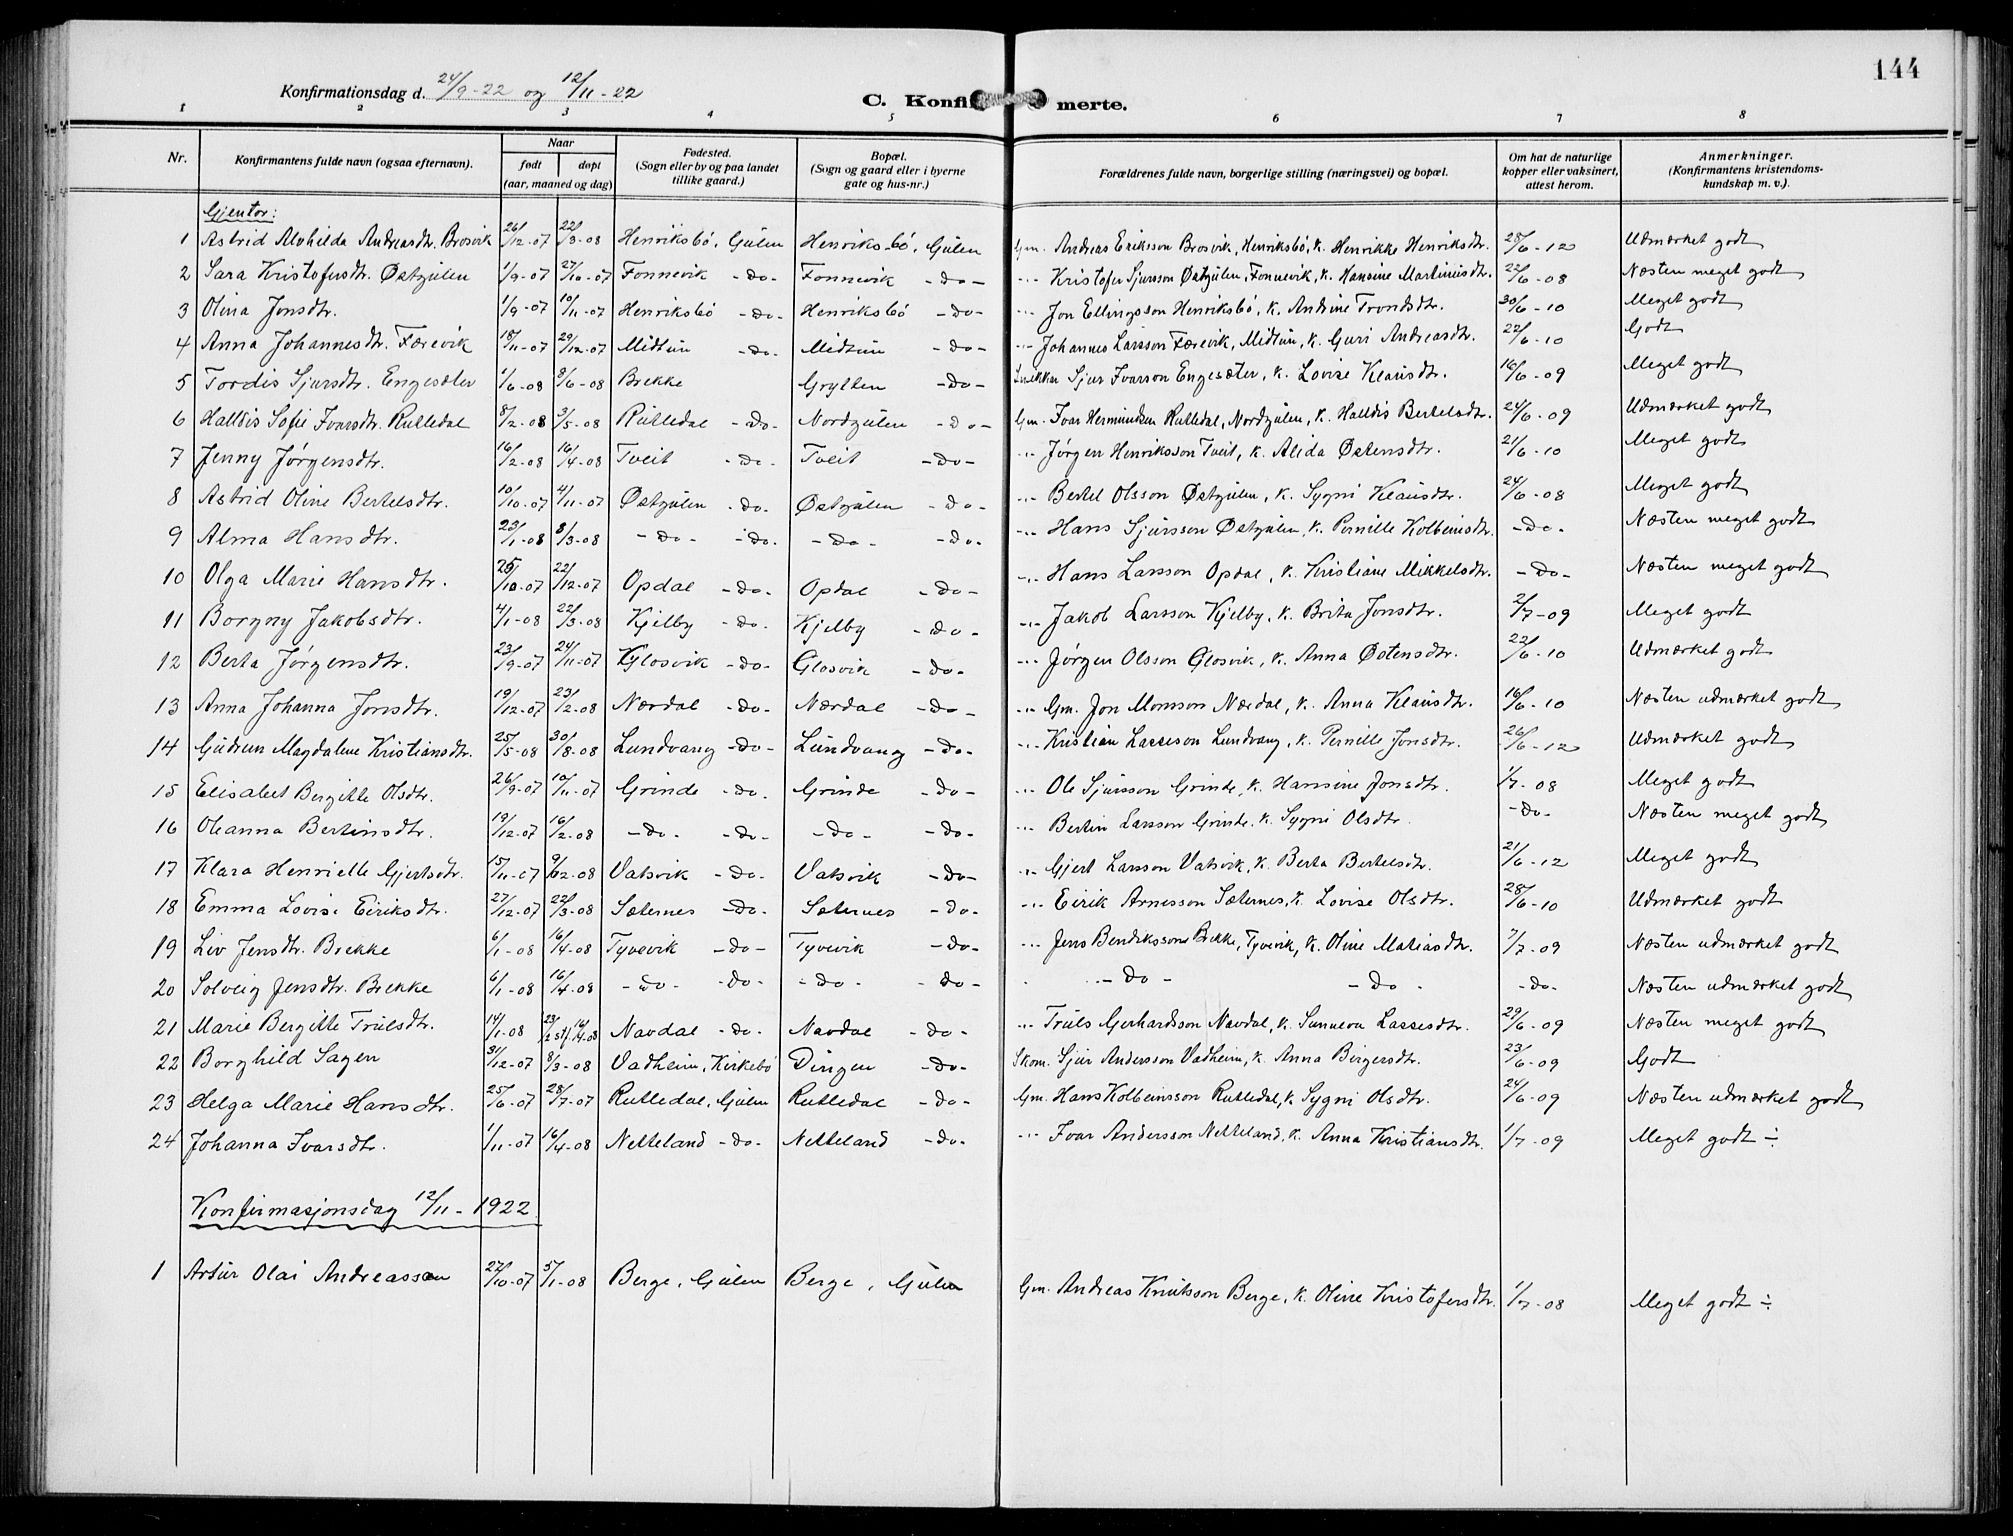 144
Konfirmationsdag d. 24/9-22 og 12/11-22
C. Konfi merte.
1 2 3 4 5 6 7 8
Nr. Konfirmantens fulde navn (ogsaa efternavn). Naar født døpt (aar, maaned og dag) Fødested. (Sogn eller by og paa landet tillike gaard.) Bopæl. (Sogn og gaard eller i byerne gate og hus-nr.) Forældrenes fulde navn, borgerlige stilling (næringsvei) og bopæl. Om hat de naturlige kopper eller vaksinert, attest herom. Anmerkninger. (Konfirmantens kristendoms-kundskap m. v.).
Gjentor:
1 Astrid Alvhilda Andreasdtr. Brosvik 26/12-07 22/3-08 Henriksbö, Gulen Henriksbö, Gulen Gm. Andreas Eriksson Brosvik, Henriksbö, k. Henrikke Henriksdtr. 28/6-12 Udmærket godt
2 Sara Kristofersdtr. Østgulen 1/9-07 27/10-07 Fonnevik -do- Fonnevik -do- -"- Kristofer Sjursson Østgulen, Fonnevik, k. Hansine Martinusdtr. 22/6-08 Næsten meget godt
3 Olina Jonsdtr. 1/9-07 10/11-07 Henriksbö -do- Henriksbö -do- -"- Jon Ellingsson Henriksbö, k. Andrine Trondsdtr. 30/6-10 Meget godt
4 Anna Johannesdtr. Færevik 18/11-07 29/12-07 Midtun -do- Midtun -do- -"- Johannes Larsson Færevik, Midtun, k. Guri Andreasdtr. 22/6-10 Godt
5 Tordis Sjursdtr. Engesæter 1/6-08 8/6-08 Brekke Grytten -do- Snekker Sjur Ivarson Engesæter, k. Lovise Klausdtr. 16/6-09 Meget godt
6 Halldis Sofie Ivarsdtr. Rutledal 8/2-08 3/5-08 Rutledal -do- Nordgulen -do- Gm. Ivar Hermundsen Rutledal, Nordgulen, k. Halldis Bertelsdtr. 24/6-09 Udmærket godt
7 Jenny Jørgensdtr. 16/2-08 16/4-08 Tveit -do- Tveit -do- -"- Jørgen Henriksson Tveit, k. Alida Østensdtr. 21/6-10 Meget godt
8 Astrid Oline Bertelsdtr. 10/10-07 4/11-07 Østgulen -do- Østgulen -do- -"- Bertel Olsson Østgulen, k. Sygni Klausdtr. 24/6-08 Meget godt
9 Alma Hansdtr. 23/1-08 8/3-08 -do- -do- -do- -do- -"- Hans Sjursson Østgulen, k. Pernille Kolbeinsdtr. -do- Næsten meget godt
10 Olga Marie Hansdtr. 25/10-07 22/12-07 Opdal -do- Opdal -do- -"- Hans Larsson Opdal, k. Kristiane Mikkelsdtr. -do- Næsten meget godt
11 Borgny Jakobsdtr. 4/1-08 22/3-08 Kjelby -do- Kjelby -do- -"- Jakob Larsson Kjelby, k. Brita Jonsdtr. 2/7-09 Meget godt
12 Berta Jørgensdtr. 23/9-07 24/11-07 Glosvik -do- Glosvik -do- -"- Jørgen Olsson Glosvik, k. Anna Østensdtr. 22/6-10 Udmærket godt
13 Anna Johanna Jonsdtr. 19/12-07 23/2-08 Nærdal -do- Nærdal -do- -"- Gm. Jon Monsson Nærdal, k. Anna Klausdtr. 16/6-10 Næsten udmærket godt
14 Gudrun Magdalene Kristiansdtr. 25/5-08 30/8-08 Lundvang -do- Lundvang -do- -"- Kristian Lasseson Lundvang, k. Pernille Jonsdtr. 26/6-12 Udmærket godt
15 Elisabet Bergitte Olsdtr. 26/9-07 10/11-07 Grinde -do- Grinde -do- -"- Ole Sjursson Grinde, k. Hansine Jonsdtr. 1/7-08 Meget godt
16 Oleanna Bertinsdtr. 19/12-07 16/2-08 -do- -do- -do- -do- -"- Bertin Larsson Grinde, k. Sygni Olsdtr. -do- Næsten meget godt
17 Klara Henrielle Gjertsdtr. 15/11-07 9/2-08 Vatsvik -do- Vatsvik -do- -"- Gjert Larsson Vatsvik, k. Berta Bertelsdtr. 21/6-12 Meget godt
18 Emma Lovise Eiriksdtr. 27/12-07 22/3-08 Sæternes -do- Sæternes -do- -"- Eirik Arnesson Sæternes, k. Lovise Olsdtr. 28/6-10 Udmærket godt
19 Liv Jensdtr. Brekke 6/1-08 16/4-08 Tyvevik -do- Tyvevik -do- -"- Jens Bendiksson Brekke, Tyvevik, k. Oline Matiasdtr. 7/7-09 Næsten udmærket godt
20 Solveig Jensdtr. Brekke 6/1-08 16/4-08 -do- -do- -do- -do- -do- -do- -do- Næsten udmærket godt
21 Marie Bergitte Trulsdtr. 14/1-08 23/2 st. 16/4-08 Navdal -do- Navdal -do- -"- Truls Gerhardsson Navdal, k. Sunneva Lassesdtr. 29/6-09 Næsten meget godt
22 Borghild Sagen 31/12-07 8/3-08 Vadheim, Kirkebö Dingen -do- Skom. Sjur Andersson Vadheim, k. Anna Birgersdtr. 23/6-09 Godt
23 Helga Marie Hansdtr. 25/6-07 28/7-07 Rutledal, Gulen Rutledal -do- Gm. Hans Kolbeinsson Rutledal, k. Sygni Olsdtr. 24/6-09 Næsten udmærket godt
24 Johanna Ivarsdtr. 1/11-07 16/4-08 Netteland -do- Netteland -do- -"- Ivar Andersson Netteland, k. Anna Kristiansdtr. 1/7-09 Meget godt ÷
Konfirmasjonsdag 12/11-1922
1 Artur Olai Andreasson 27/10-07 5/1-08 Berge, Gulen Berge, Gulen Gm. Andreas Knutsson Berge, k. Oline Kristofersdtr. 1/7-08 Meget godt ÷